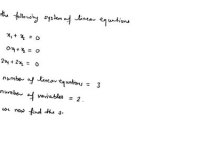 the following system of linear equations
x₁ + x₂ = 0
0x₁ + x₂ = 0
2x₁ + 2x₂ = 0
number of linear equations = 3
number of variables = 2.
we now find the s